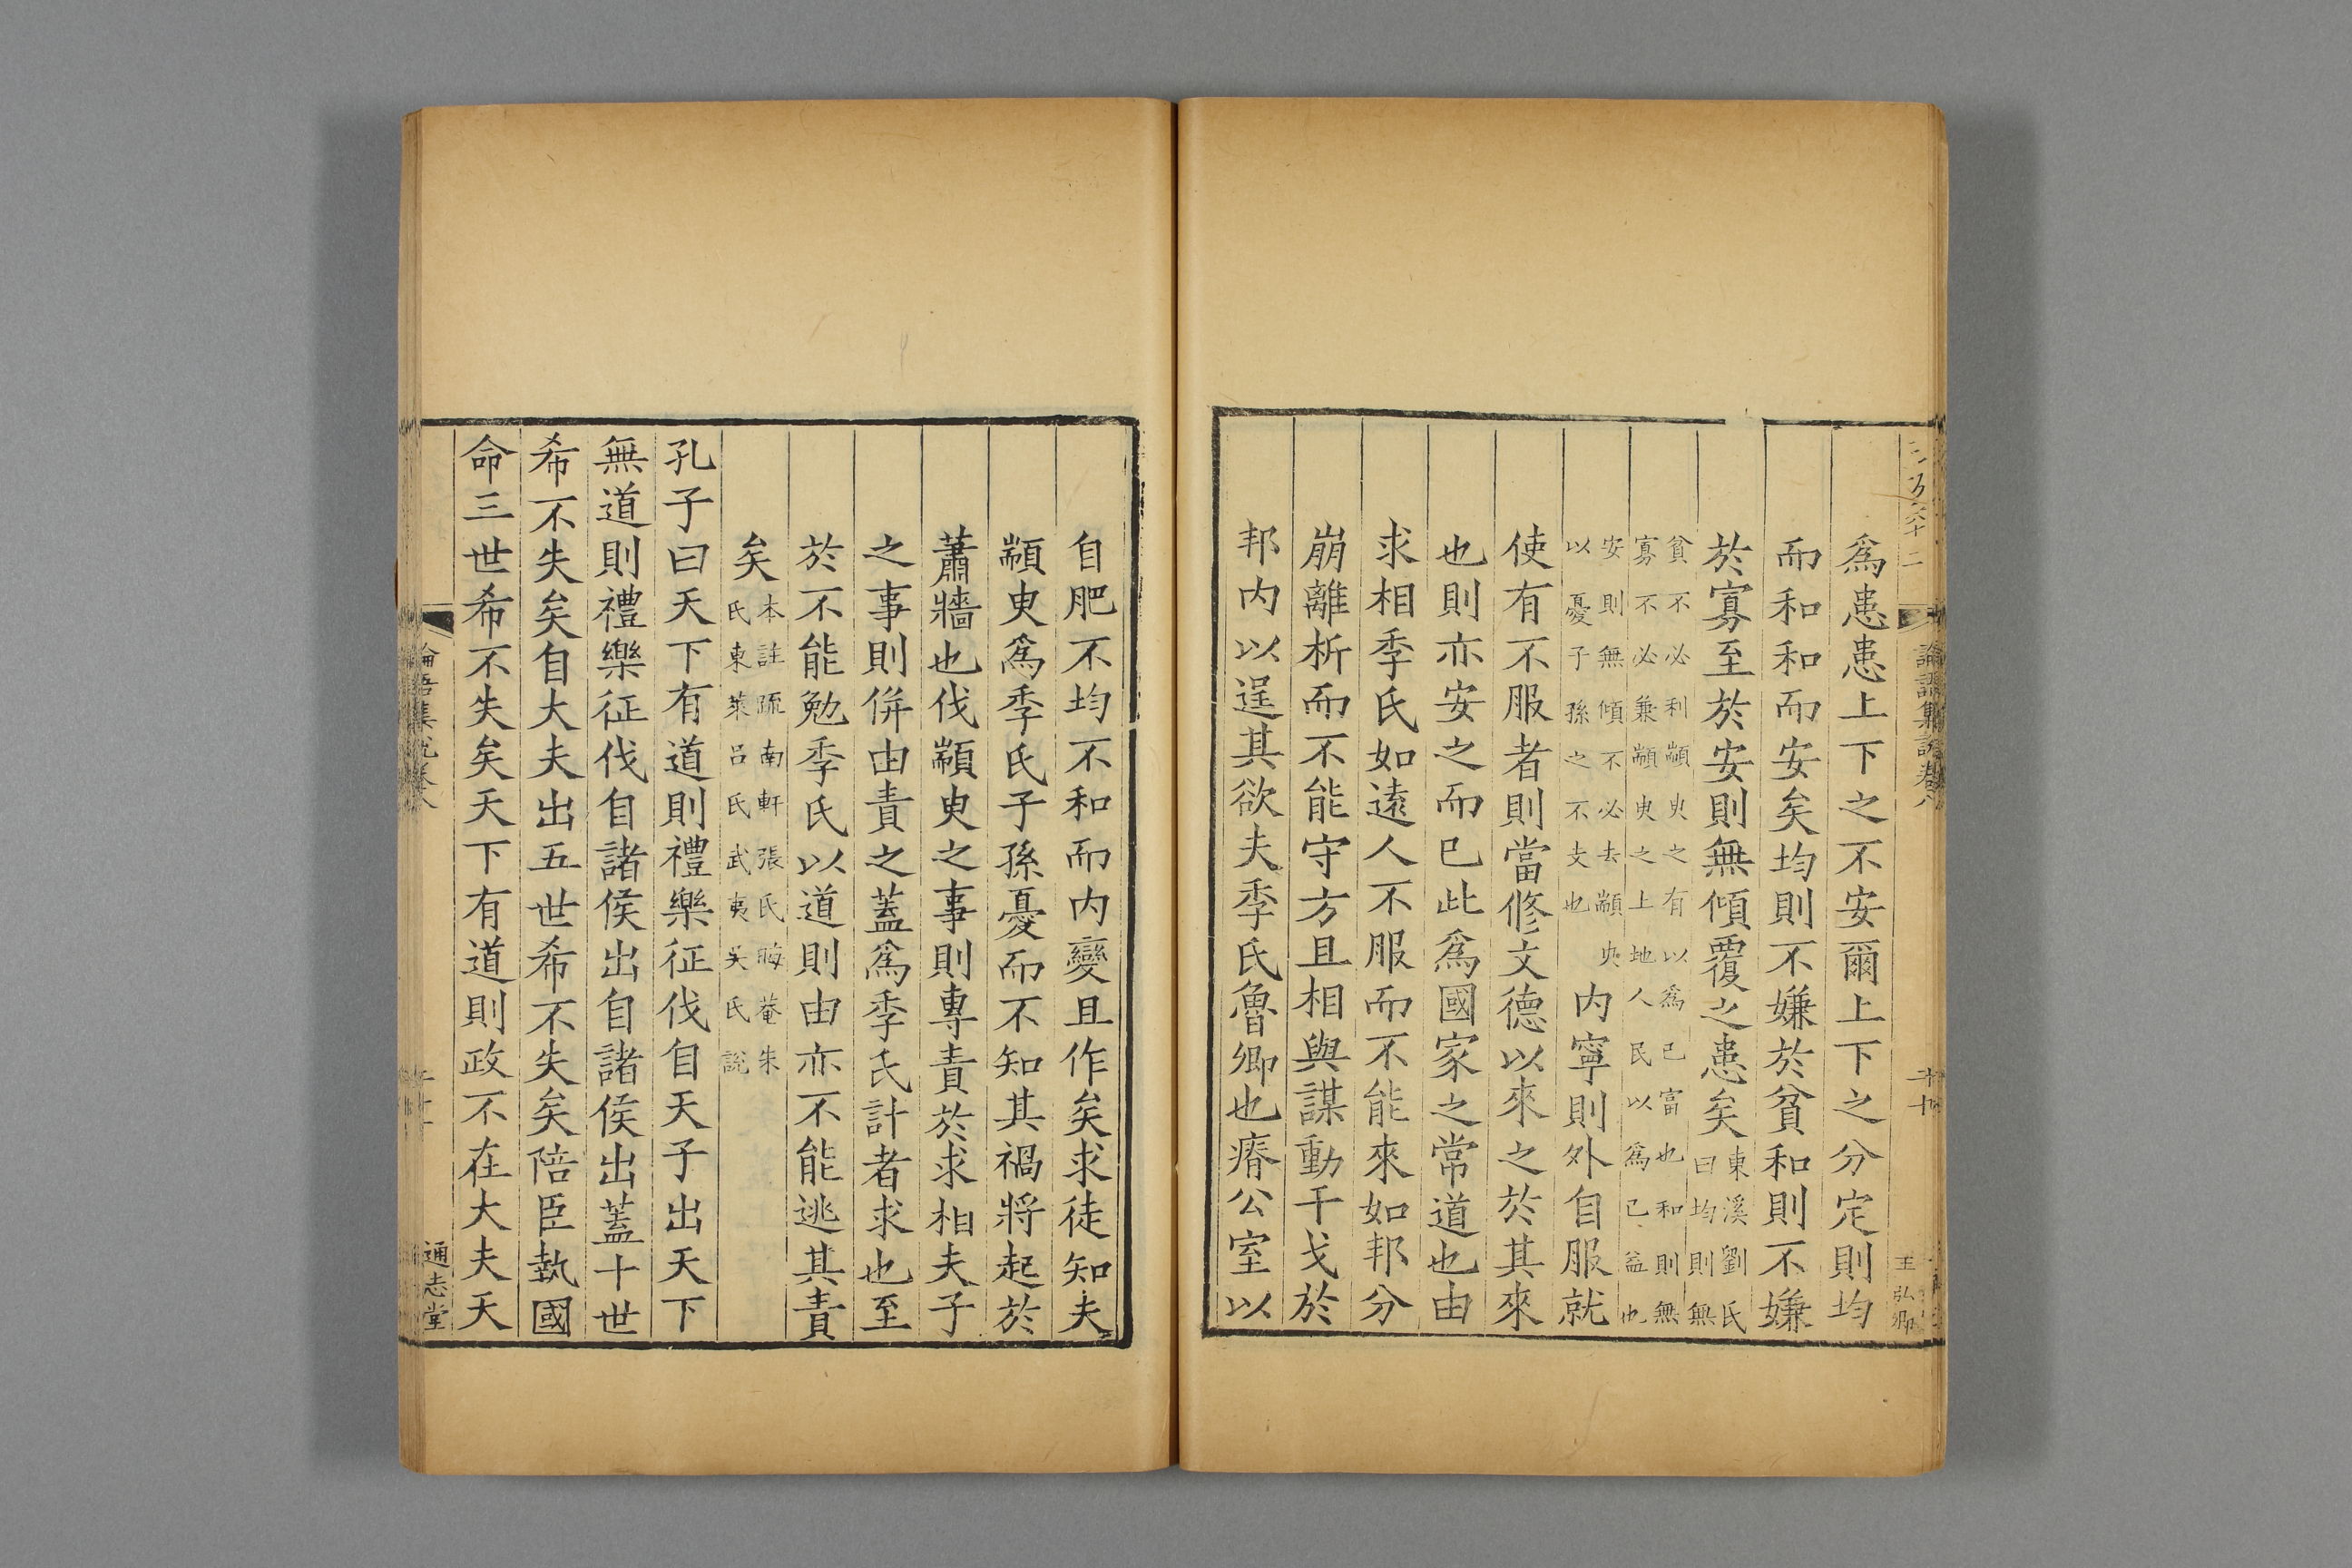 論語集說卷八
王弘卿
爲患患上下之不安爾上下之分定則均
而和和而安矣均則不嫌於貧和則不嫌
於寡至於安則無傾覆之患矣東溪劉氏曰均則無
貧不必利顓臾之有以爲己富也和則無
寡不必兼顓臾之上地人民以爲己益也
安則無傾不必去顓臾
以憂子孫之不支也
內寧則外自服就
使有不服者則當修文德以來之於其來
也則亦安之而已此爲國家之常道也由
求相季氏如遠人不服而不能來如邦分
崩離析而不能守方且相與謀動干戈於
邦內以逞其欲夫季氏魯卿也瘠公室以
自肥不均不和而內變且作矣求徒知夫
顓臾爲季氏子孫憂而不知其禍將起於
蕭牆也伐顓臾之事則專責於求相夫子
之事則併由責之蓋爲季氏計者求也至
於不能勉季氏以道則由亦不能逃其責
矣本註疏南軒張氏晦菴朱氏東萊呂氏武夷吳氏說
孔子曰天下有道則禮樂征伐自天子出天下
無道則禮樂征伐自諸侯出自諸侯出蓋十世
希不失矣自大夫出五世希不失矣陪臣執國
命三世希不失矣天下有道則政不在大夫天
論語集說卷八
通志堂